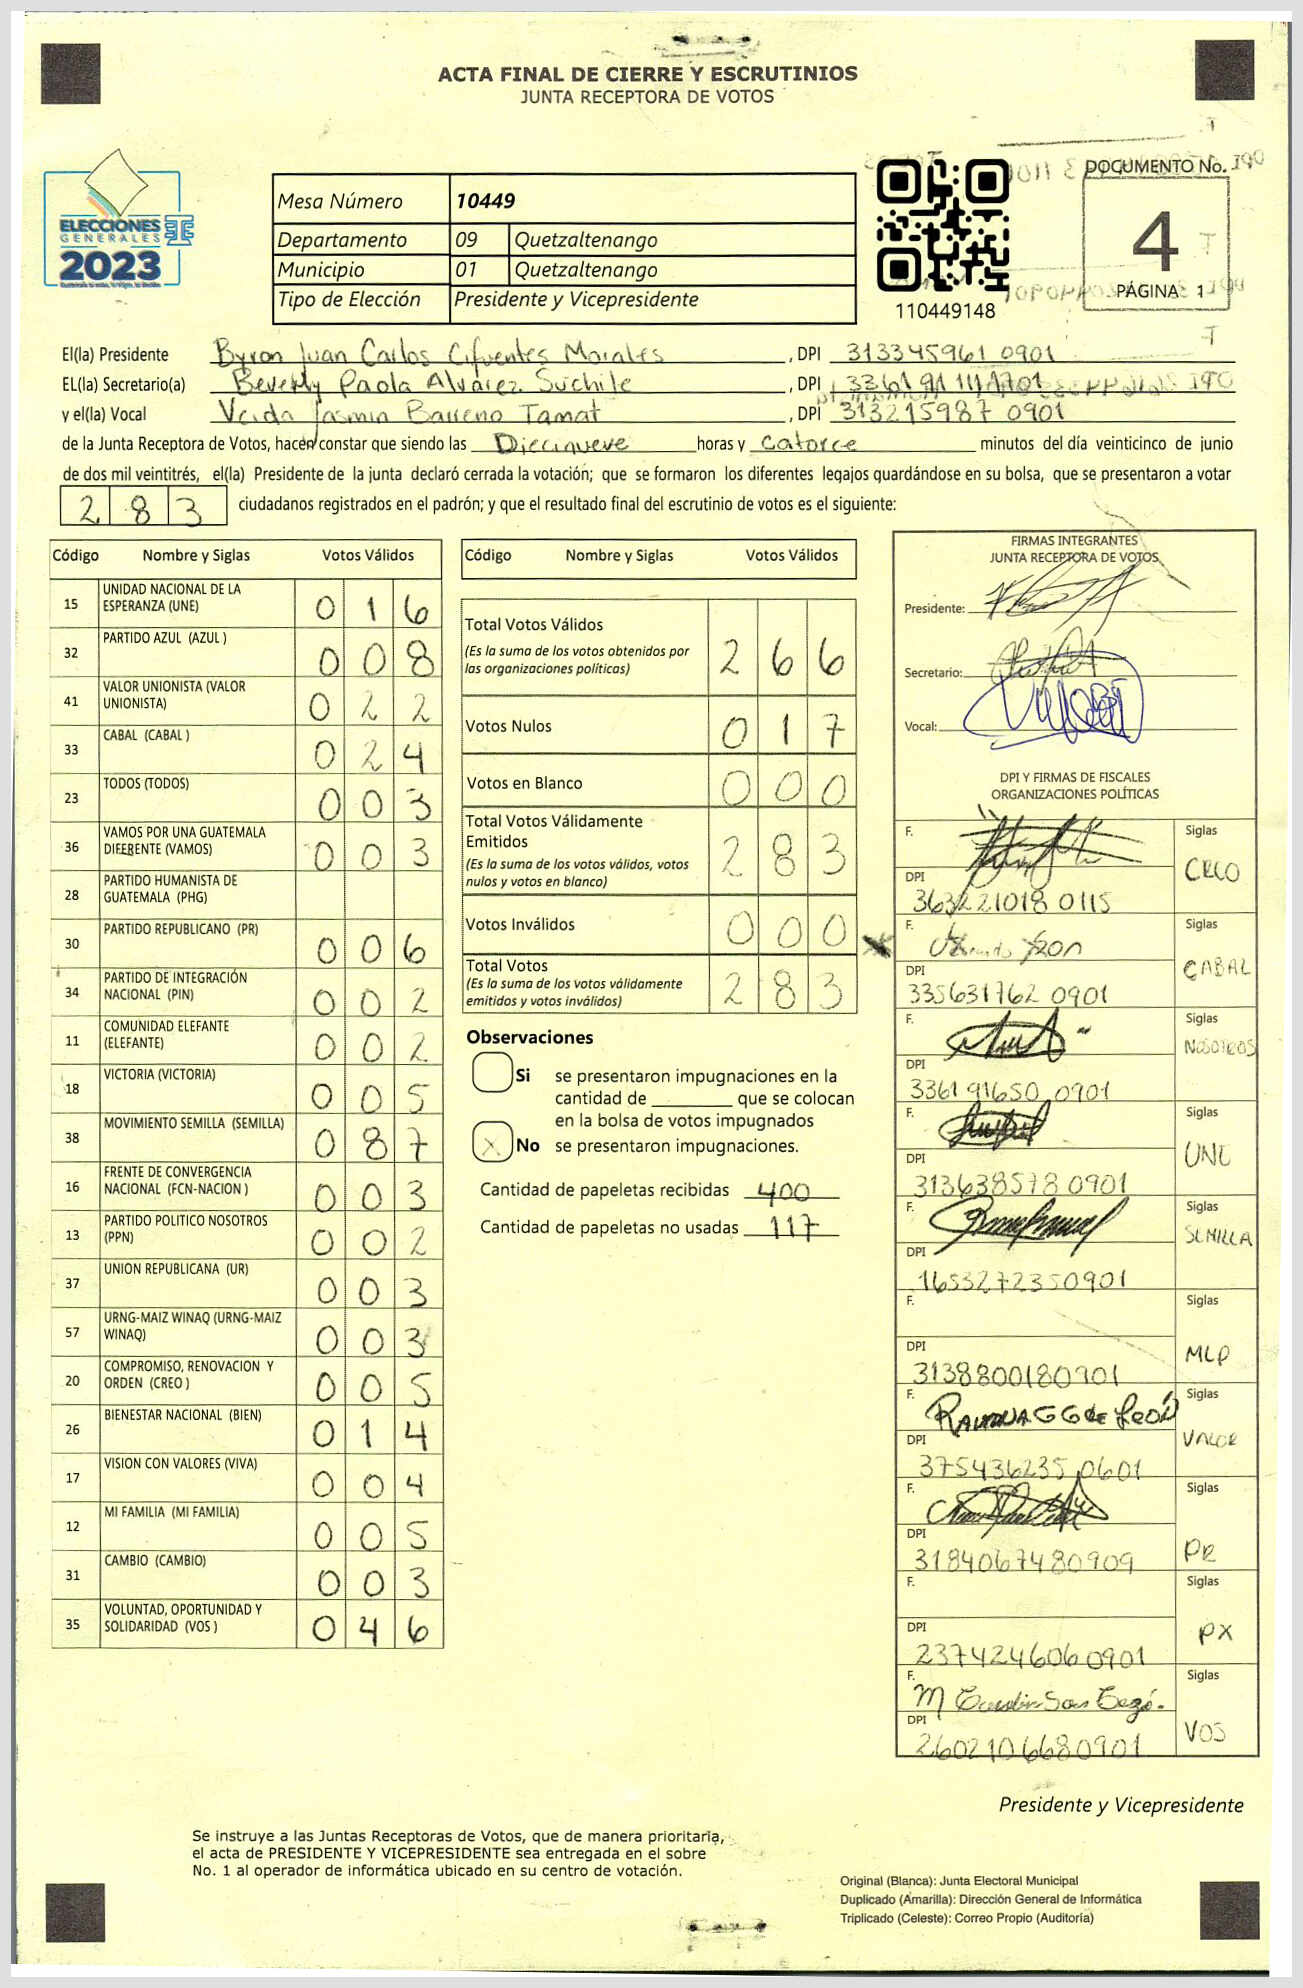 ACTA FINAL DE CIERRE Y ESCRUTINIOS
JUNTA RECEPTORA DE VOTOS
ELECCIONES
GENERALES
2023
Mesa Número 10449
Departamento 09 Quetzaltenango
Municipio 01 Quetzaltenango
Tipo de Elección Presidente y Vicepresidente
110449148
DOCUMENTO No.
4
PÁGINA 1
El(la) Presidente Byron Juan Carlos Cifuentes Morales, DPI 313345961 0901
EL(la) Secretario(a) Beverly Paola Alvarez Suchite, DPI
y el(la) Vocal Jasmin Barreno Tamat, DPI 313215987 0901
de la Junta Receptora de Votos, hacen constar que siendo las Diecinueve horas y catorce minutos del día veinticinco de junio
de dos mil veintitrés, el(la) Presidente de la junta declaró cerrada la votación; que se formaron los diferentes legajos guardándose en su bolsa, que se presentaron a votar
283 ciudadanos registrados en el padrón; y que el resultado final del escrutinio de votos es el siguiente:
Código Nombre y Siglas Votos Válidos
15 UNIDAD NACIONAL DE LA ESPERANZA (UNE) 016
32 PARTIDO AZUL (AZUL ) 008
41 VALOR UNIONISTA (VALOR UNIONISTA) 022
33 CABAL (CABAL ) 024
23 TODOS (TODOS) 003
36 VAMOS POR UNA GUATEMALA DIFERENTE (VAMOS) 003
28 PARTIDO HUMANISTA DE GUATEMALA (PHG)
30 PARTIDO REPUBLICANO (PR) 006
34 PARTIDO DE INTEGRACIÓN NACIONAL (PIN) 002
11 COMUNIDAD ELEFANTE (ELEFANTE) 002
18 VICTORIA (VICTORIA) 005
38 MOVIMIENTO SEMILLA (SEMILLA) 087
16 FRENTE DE CONVERGENCIA NACIONAL (FCN-NACION ) 003
13 PARTIDO POLITICO NOSOTROS (PPN) 002
37 UNION REPUBLICANA (UR) 003
57 URNG-MAIZ WINAQ (URNG-MAIZ WINAQ) 003
20 COMPROMISO, RENOVACION Y ORDEN (CREO ) 005
26 BIENESTAR NACIONAL (BIEN) 014
17 VISION CON VALORES (VIVA) 004
12 MI FAMILIA (MI FAMILIA) 005
31 CAMBIO (CAMBIO) 003
35 VOLUNTAD, OPORTUNIDAD Y SOLIDARIDAD (VOS ) 046
Código Nombre y Siglas Votos Válidos
Total Votos Válidos 266
(Es la suma de los votos obtenidos por
las organizaciones políticas)
Votos Nulos 017
Votos en Blanco 000
Total Votos Válidamente
Emitidos 283
(Es la suma de los votos válidos, votos
nulos y votos en blanco)
Votos Inválidos 000
Total Votos 283
(Es la suma de los votos válidamente
emitidos y votos inválidos)
Observaciones
Si se presentaron impugnaciones en la
cantidad de ________ que se colocan
en la bolsa de votos impugnados
X No se presentaron impugnaciones.
Cantidad de papeletas recibidas 400
Cantidad de papeletas no usadas 117
FIRMAS INTEGRANTES
JUNTA RECEPTORA DE VOTOS
Presidente:
Secretario:
Vocal:
DPI Y FIRMAS DE FISCALES
ORGANIZACIONES POLÍTICAS
F. Siglas
CREO
DPI
363221018 0115
F. Siglas
CABAL
DPI
335631762 0901
F. Siglas
NOSOTROS
DPI
336191650 0901
F. Siglas
UNE
DPI
313638578 0901
F. Siglas
SEMILLA
DPI
1653272350901
F. Siglas
MLP
DPI
3138800180901
F. Siglas
VALOR
DPI
375436235 0601
F. Siglas
PR
DPI
3184067480909
F. Siglas
PX
DPI
237424606 0901
F. Siglas
VOS
DPI
2602106680901
Presidente y Vicepresidente
Se instruye a las Juntas Receptoras de Votos, que de manera prioritaria,
el acta de PRESIDENTE Y VICEPRESIDENTE sea entregada en el sobre
No. 1 al operador de informática ubicado en su centro de votación.
Original (Blanca): Junta Electoral Municipal
Duplicado (Amarilla): Dirección General de Informática
Triplicado (Celeste): Correo Propio (Auditoría)